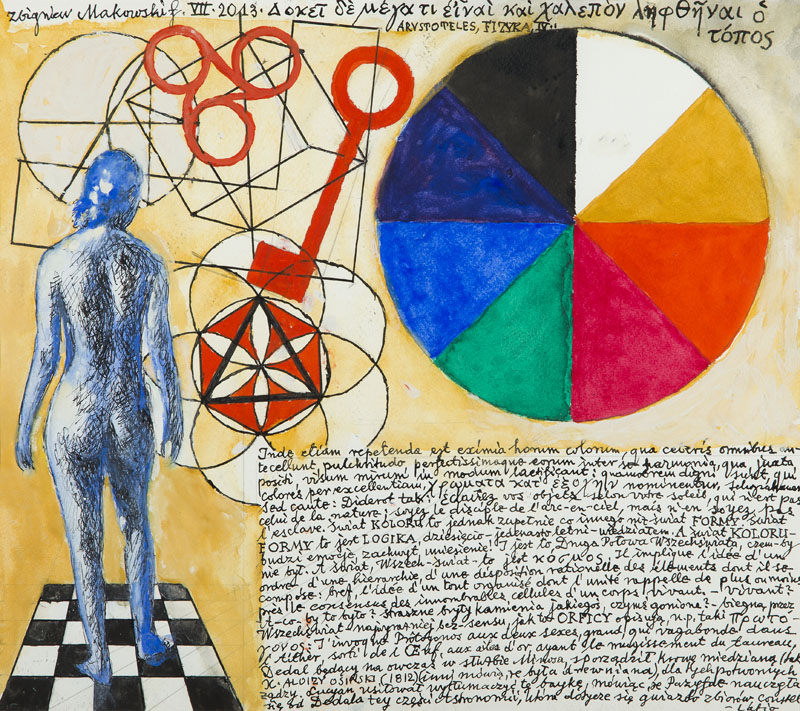 Zbigniew Makowski f. VII. 2013. Δοκεῖ δὲ μέγα τι εἶναι καὶ χαλεπὸν ληφθῆναι ὁ
τόπος
ARYSTOTELES, FIZYKA, IV
Inde etiam repetenda est eximia horum colorum, qua ceteris omnibus an-
tecellunt, pulchritudo, perfectissimaque eorum inter se harmonia, qua juxta
positi, visum mirum in modum laetificant: a quo digni sunt, qui
colores per excellentiam, χρώματα κατ ἐξοχήν nominentur,
sed caute: Diderot tak: Éclairez vos objets selon votre soleil, qui n'est pas
celui de la nature; soyez le disciple de l'arc-en-ciel, mais n'en soyez pas
l'esclave. Świat KOLORU to jednak zupełnie co innego niż świat FORMY. Świat
FORMY to jest LOGIKA, dziesięcio-jedenasto letni wiedziałem. A świat KOLORU-
budzi emocje, zachwyt, uniesienie! I jest to Druga Połowa Wszechświata, czem-by
nie był. A świat, Wszech-świat- to jest κόσμος. Il implique l'idée d'un
ordre, d'une hiérarchie, d'une disposition rationelle des éléments dont il se
compose: bref, l'idée d'un tout organisé dont l'unité rappelle de plus ou moins
près le consensus des innombrables cellules d'un corps vivant. Vivant?
I-co-by to było? Straszne bryły kamienia jakiegoś, czymś gonione?- biegną przez
Wszechświat najpewniej bez-sensu, jak to ORFICY opisują, n.p. taki Πρωτο-
γονος: J'invoque Protogonos aux deux sexes, grand, qui vagabonde dans
l'éther, sorti de l'Œuf, aux ailes d'or, ayant le mugissement du taureau,
Dedal będący na owczas w służbie Minosa, sporządził krowę miedzianą (tak
X. ALOIZY OSIŃSKI (1812) (inni mówią, że była drewniana), dla tych potwornych
żądzy. Lucyan usiłował wytłumaczyć tę baykę, mówiąc, że Pazyfae nauczyła
się od Dedala tey części Astronomii, która dotycze się gwiazdo zbiorów,